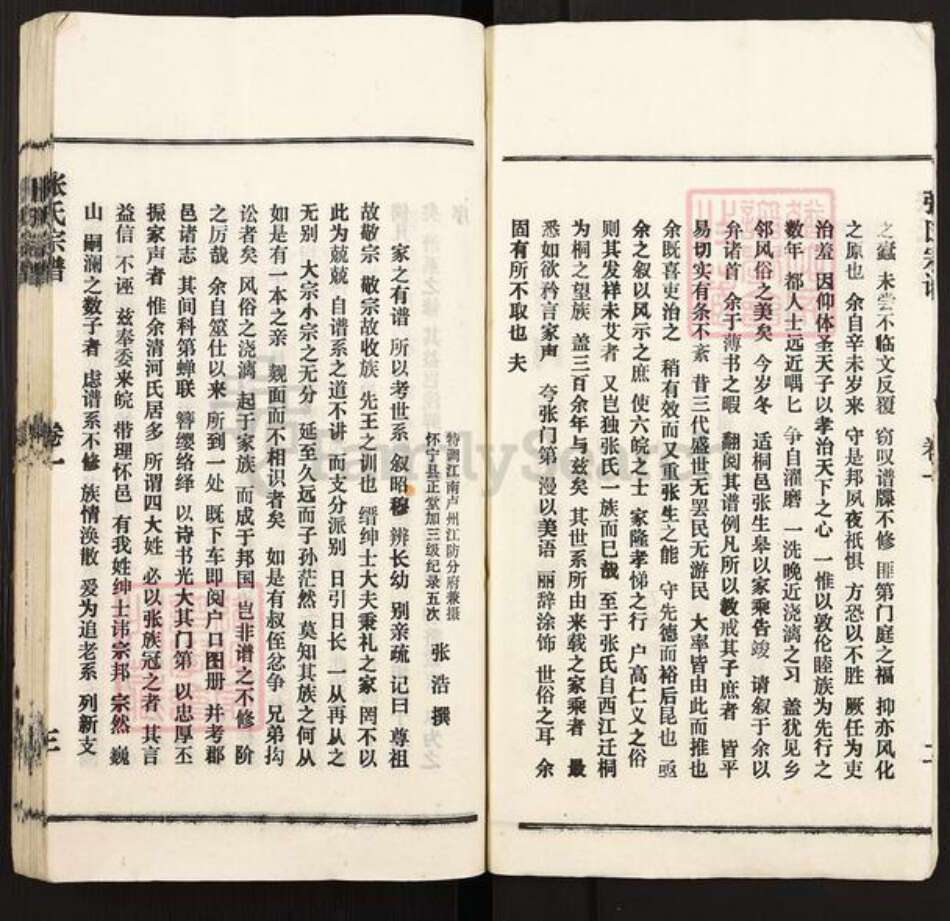 张氏宗谱
卷一
二
之蠹 未尝不临文反覆 窃叹谱牒不修 匪第门庭之福 抑亦风化
之原也 余自辛未岁来 守是邦夙夜祇惧 方恐以不胜 厥任为吏
治羞 因仰体圣天子以孝治天下之心 一惟以敦伦睦族为先行之
数年 都人士远近喁匕 争自濯磨 一洗晚近浇漓之习 盖犹见乡
邻风俗之美矣 今岁冬 适桐邑张生皋以家乘告竣 请叙于余以
弁诸首 余于薄书之暇 翻阅其谱例凡所以教戒其子庶者 皆平
易切实有条不紊 昔三代盛世无罢民无游民 大率皆由此而推也
余既喜吏治之 稍有效而又重张生之能 守先德而裕后昆也 亟
余之叙以风示之庶 使六皖之士 家隆孝悌之行 户高仁义之俗
则其发祥未艾者 又岂独张氏一族而已哉 至于张氏自西江迁桐
为桐之望族 盖三百余年与兹矣 其世系所由来载之家乘者 最
悉如欲矜言家声 夸张门第 漫以美语 丽辞涂饰 世俗之耳 余
固有所不取也 夫
特调江南卢州江防分府兼摄
怀宁县正堂加三级纪录五次 张浩撰
家之有谱 所以考世系 叙昭穆 辨长幼 别亲疏 记曰 尊祖
故敬宗 敬宗故收族 先王之训也 缙绅士大夫秉礼之家 罔不以
此为兢兢 自谱系之道不讲 而支分派别 日引日长 一从再从之
无别 大宗小宗之无分 延至久远而子孙茫然 莫知其族之何从
如是有一本之亲 觌面而不相识者矣 如是有叔侄忿争 兄弟抅
讼者矣 风俗之浇漓 起于家族 而成于邦国 岂非谱之不修 阶
之厉哉 余自筮仕以来 所到一处 既下车即阅户口图册 并考郡
邑诸志 其间科第蝉联 簪缨络绎 以诗书光大其门第 以忠厚丕
振家声者 惟余清河氏居多 所谓四大姓 必以张族冠之者 其言
益信 不诬 兹奉委来皖 带理怀邑 有我姓绅士讳宗邦 宗然 巍
山 嗣澜之数子者 虑谱系不修 族情涣散 爰为追老系 列新支
张氏宗谱
卷一
三
FamilySearch